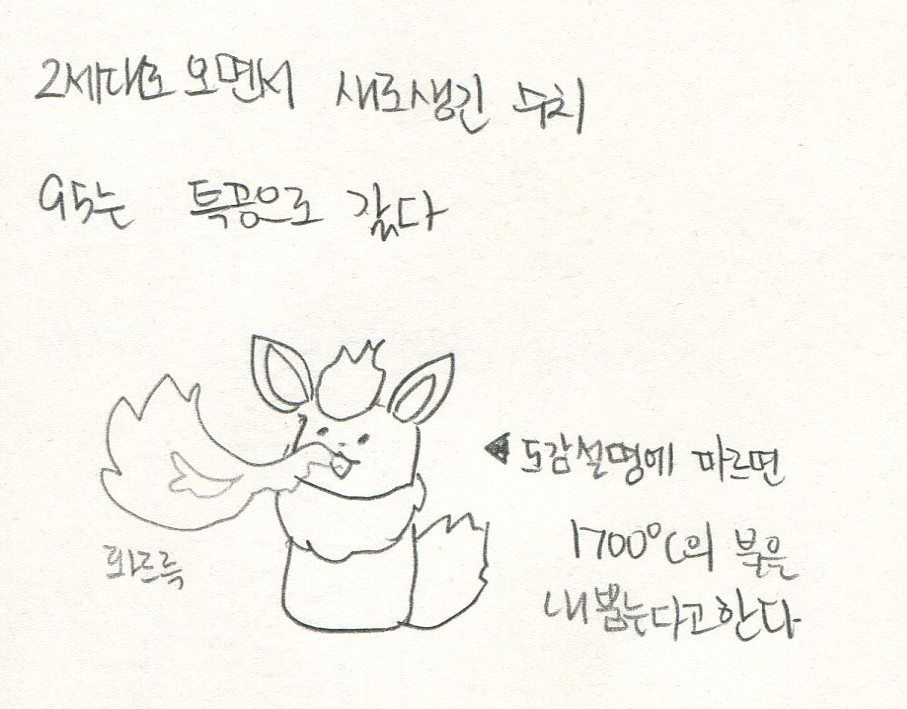 2세대로 오면서 새로생긴 수치
95는 특공으로 갔다
◀ 도감설명에 따르면
1700°C의 불을
내뿜는다고한다
화르륵